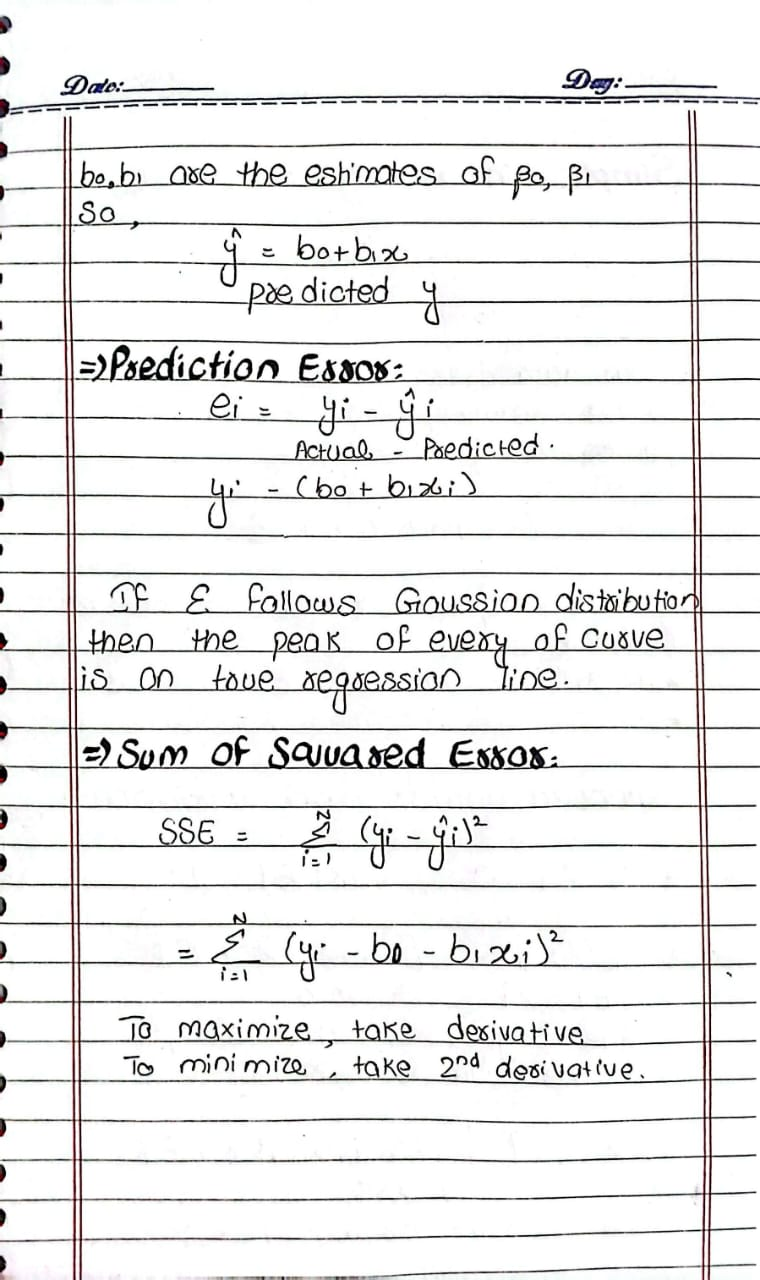 Date: Day:
b0, b1 are the estimates of β0, β1
So,
ŷ = b0 + b1x
predicted y
⇒ Prediction Error:
ei = yi - ŷi
Actual - Predicted.
yi - (b0 + b1xi)
If ε follows Gaussian distribution
then the peak of every of curve
is on true regression line.
⇒ Sum of Squared Error:
SSE = Σ_{i=1}^{N} (yi - ŷi)²
= Σ_{i=1}^{N} (yi - b0 - b1xi)²
To maximize, take derivative
To minimize, take 2nd derivative.